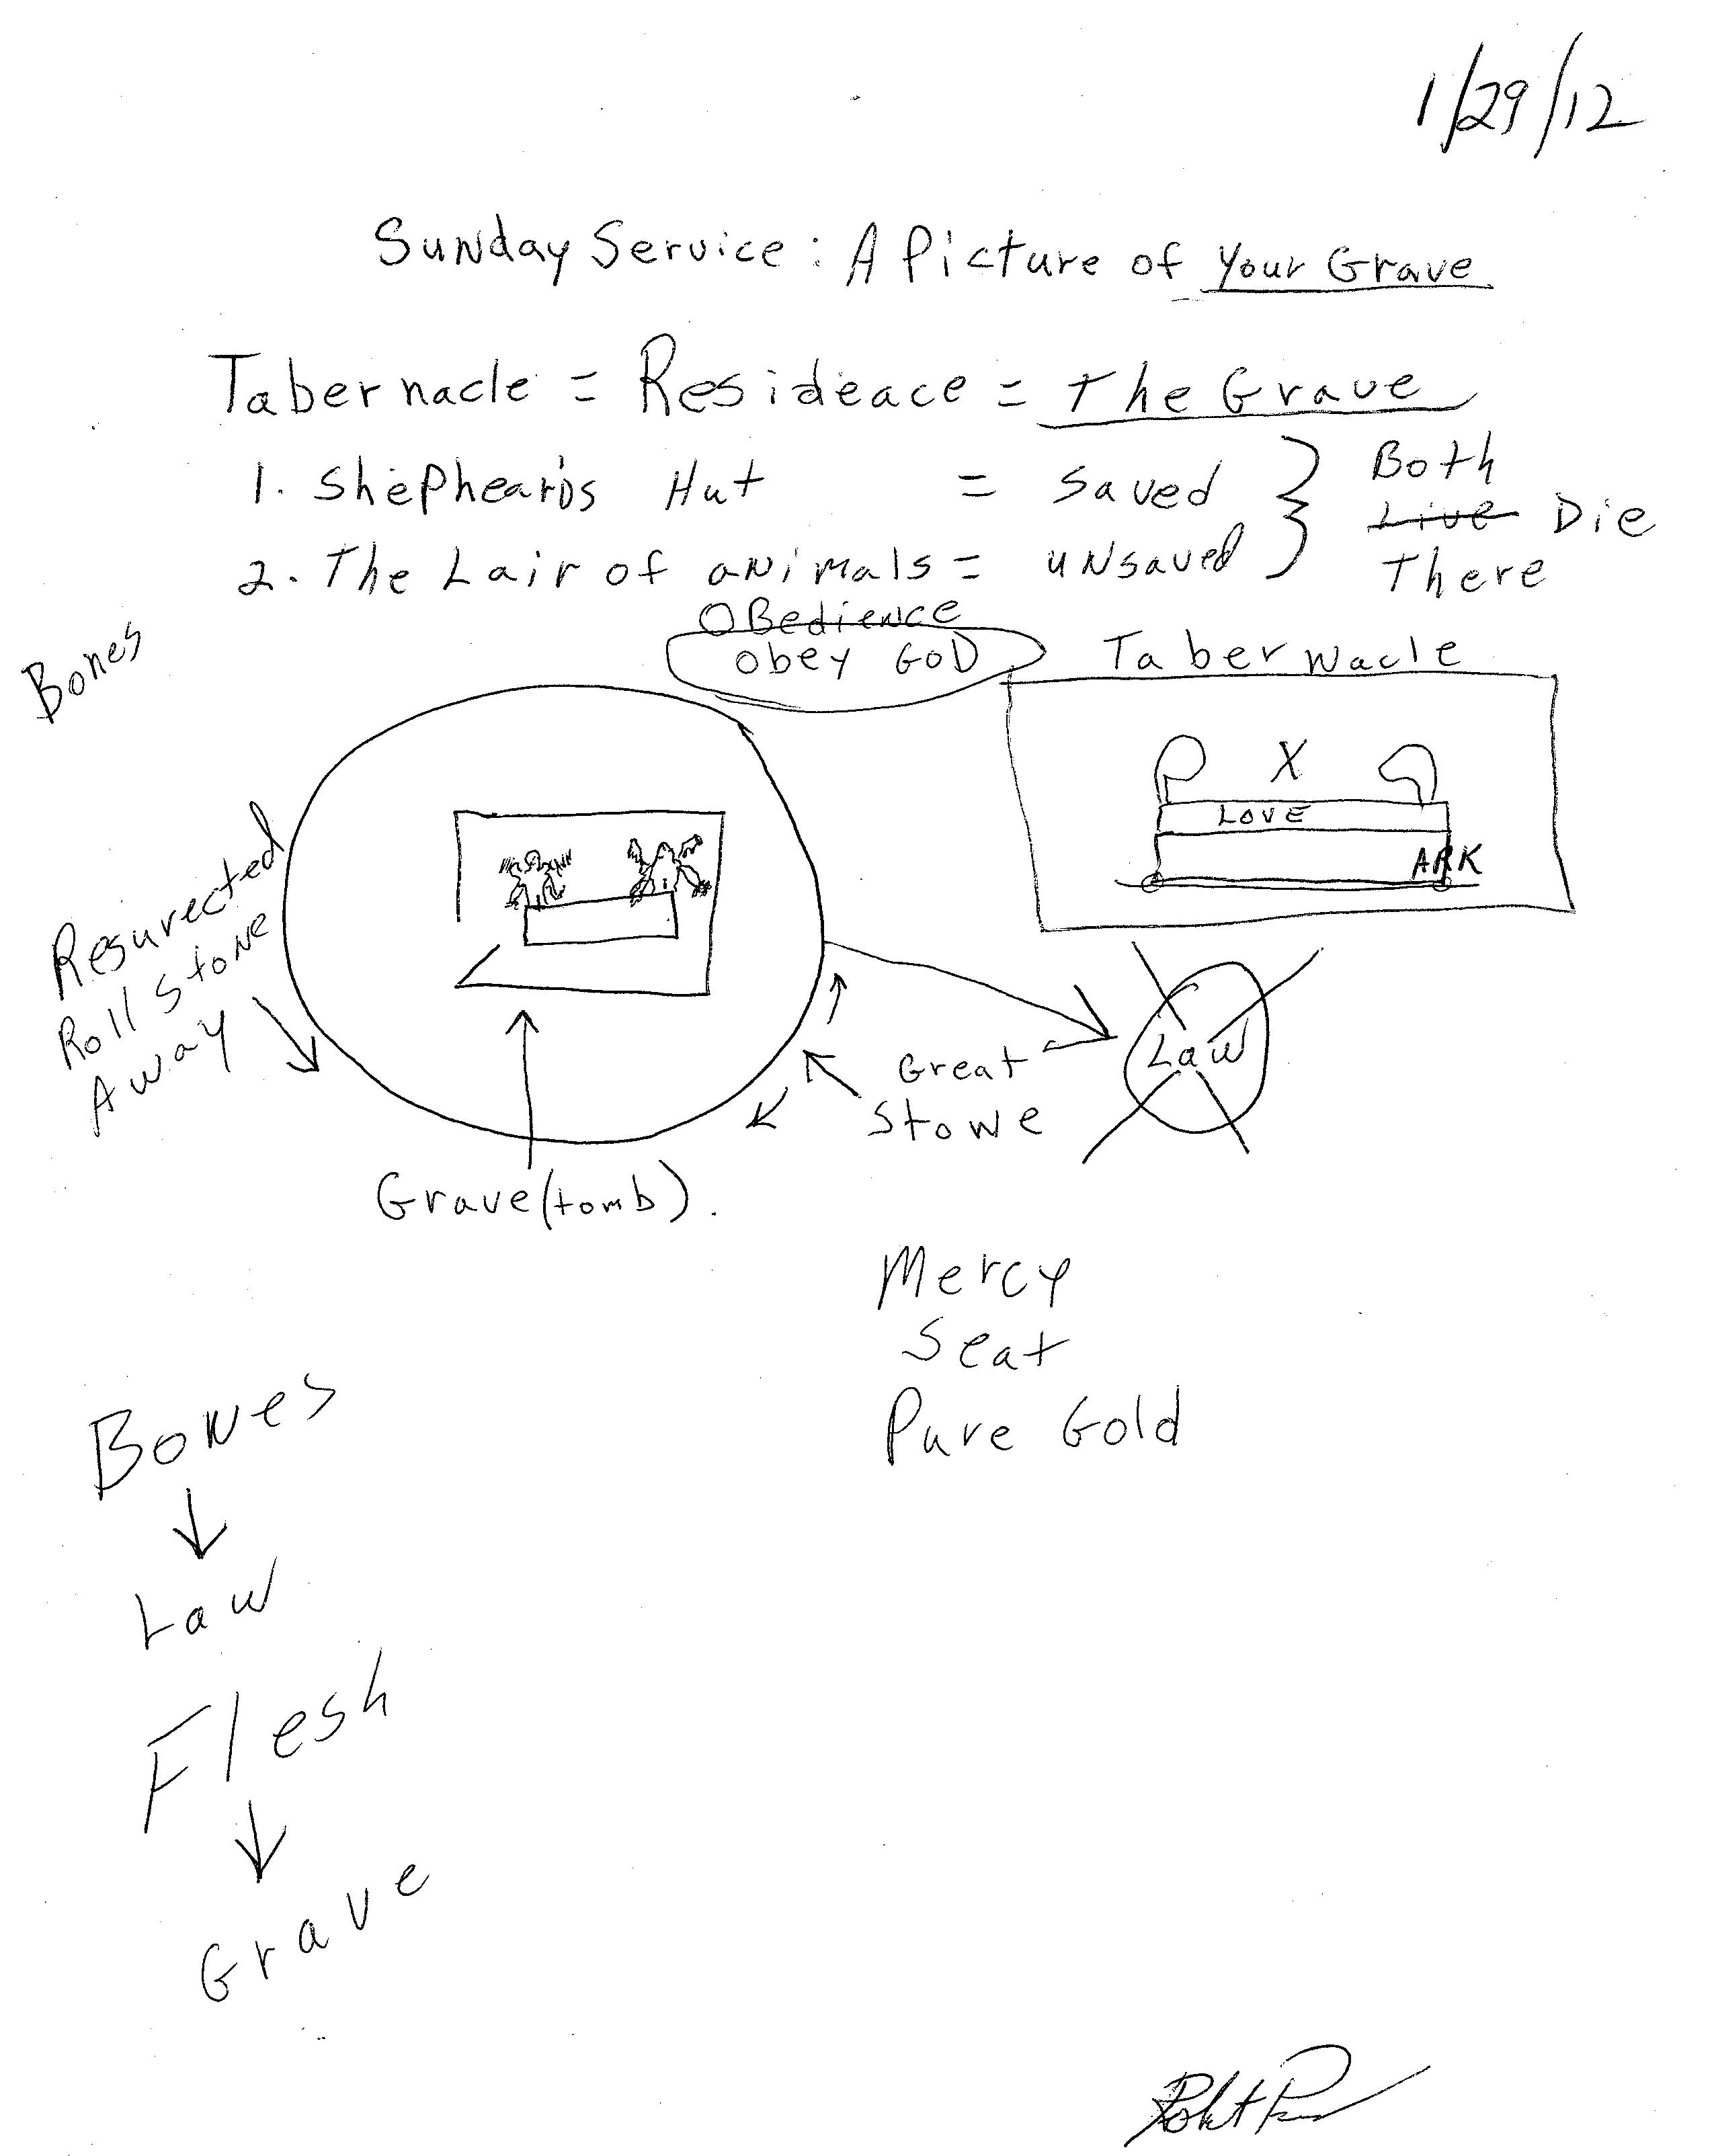 1/29/12
Sunday Service: A Picture of Your Grave
Tabernacle = Resideace = The Grave
1. Shepheard's Hut = Saved
2. The Lair of animals = unsaved
Both
Live Die
There
Obedience
Obey GOD
Tabernacle
Bones
X
LOVE
ARK
Resurected
Roll Stone
Away
Law
Great
Stone
Grave (tomb).
Mercy
Seat
Pure Gold
Bones
Law
Flesh
Grave